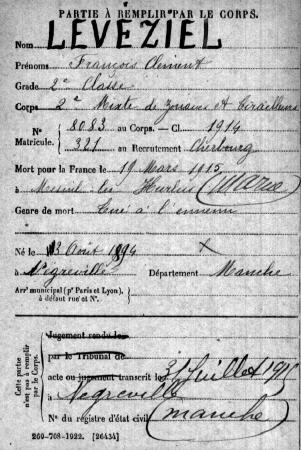 PARTIE À REMPLIR PAR LE CORPS.
Nom LEVÉZIEL
Prénoms François Clément
Grade 2e Classe
Corps 2e Mixte de Zouaves et Tirailleurs
N° 8083 au Corps. — Cl. 1914
Matricule. 321 au Recrutement Cherbourg
Mort pour la France le 19 Mars 1915
à Mesnil-les-Hurlus (Marne)
Genre de mort Tué à l'ennemi
Né le 13 Août 1894
à Négreville Département Manche
Arrt municipal (pr Paris et Lyon),
à défaut rue et N°.
Cette partie
n'est pas à remplir
par le Corps.
Jugement rendu le
par le Tribunal de
acte ou jugement transcrit le 31 Juillet 1915
à Négreville
N° du registre d'état civil (Manche)
260-708-1922. [26434]